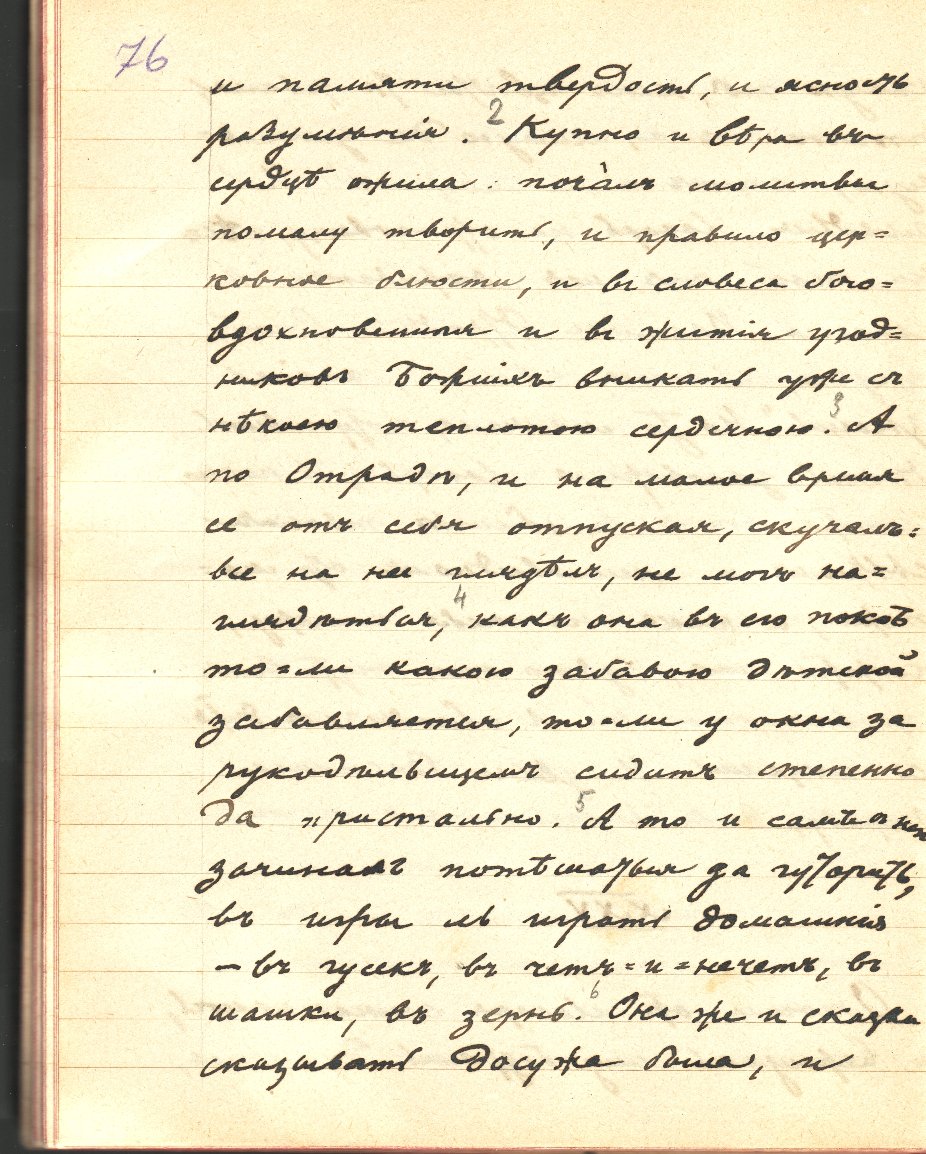 76
и памяти твердость, и ясность
разумѣнія. 2 Купно и вѣра въ
сердцѣ ожила: почалъ молитвы
помалу творить, и правило цер=
ковное блюсти, и въ словеса бого=
вдохновенныя и въ житія угод=
никовъ Божіихъ вникать уже съ
нѣкоею теплотою сердечною. 3 А
по Отрадѣ, и на малое время
се отъ себя отпуская, скучалъ:
все на нее глядѣлъ, не могъ на=
глядѣться, 4 какъ она въ его покоѣ
то=ли какою забавою дѣтской
забавляется, то=ли у окна за
рукодѣльицемъ сидитъ степенно
да пристально. 5 А то и самъ съ нею
зачиналъ потѣшаться да гуторить,
въ игры ль играть домашнія
– въ гусекъ, въ четъ=и=нечетъ, въ
шашки, въ зернь. 6 Она же и сказки
сказывать досужа была, и